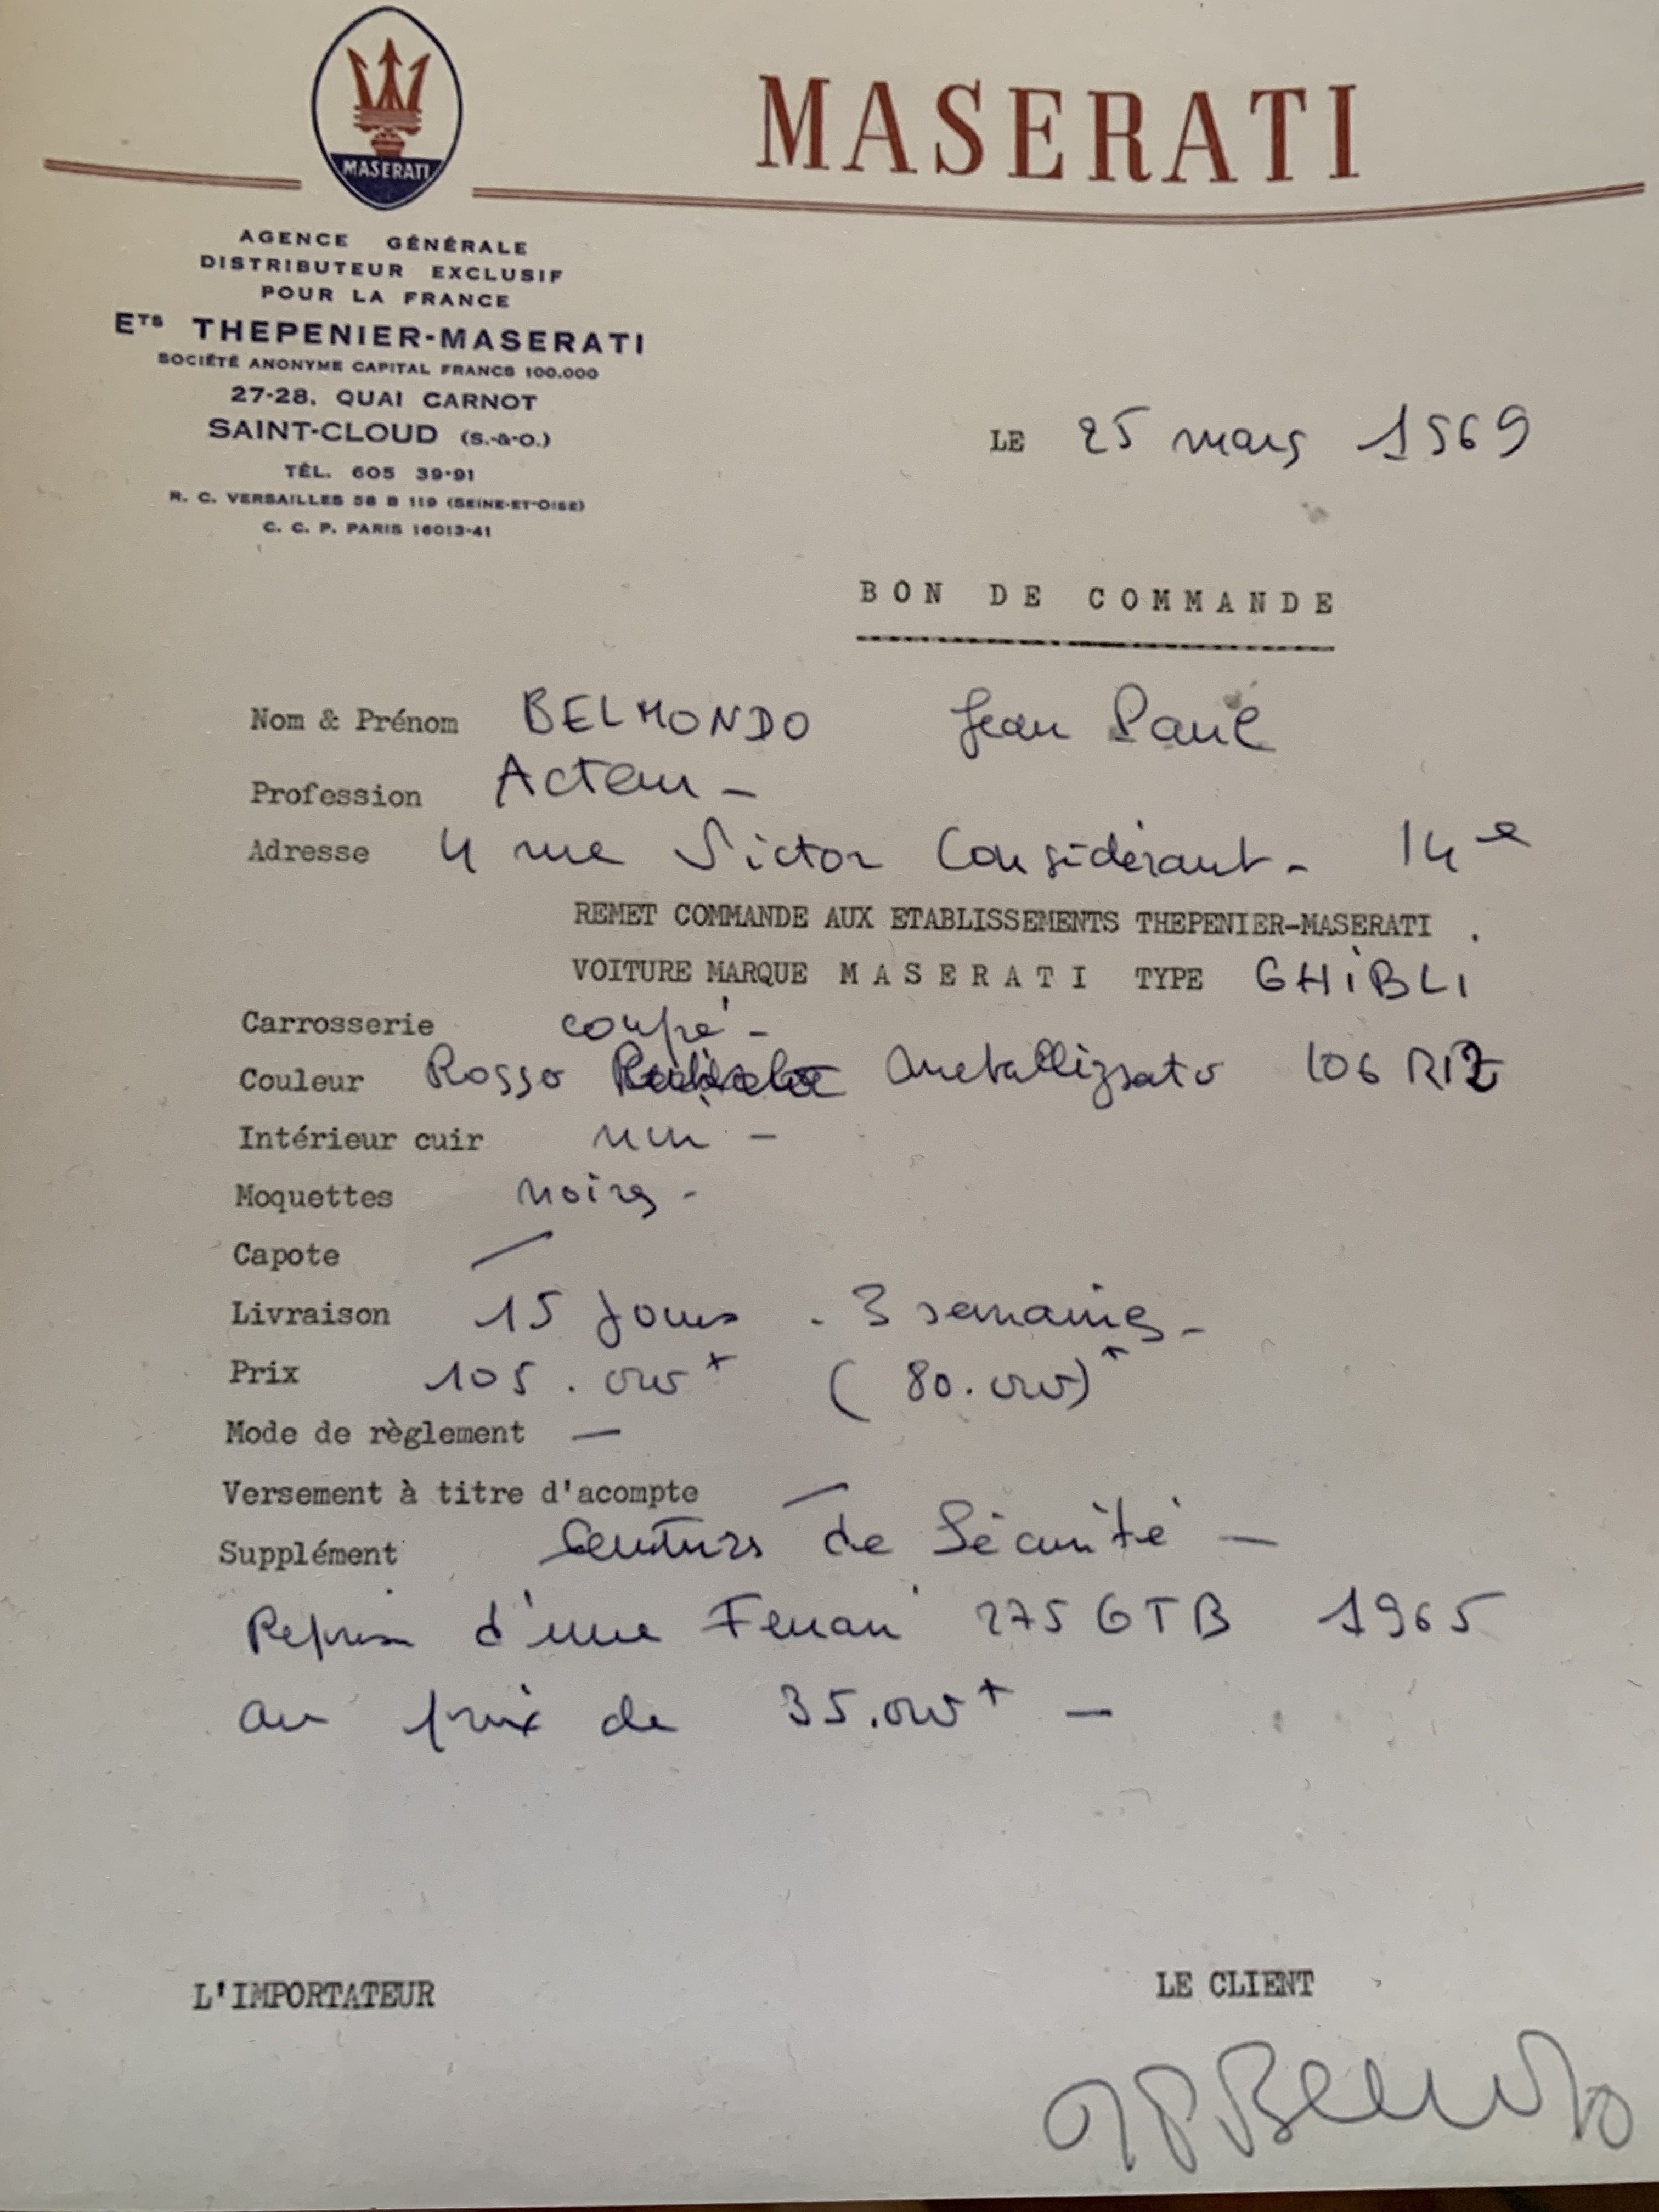 MASERATI
MASERATI
AGENCE GÉNÉRALE
DISTRIBUTEUR EXCLUSIF
POUR LA FRANCE
ETS THEPENIER-MASERATI
SOCIÉTÉ ANONYME CAPITAL FRANCS 100.000
27-28, QUAI CARNOT
SAINT-CLOUD (S.-&-O.)
TÉL. 605 39-91
R. C. VERSAILLES 58 B 119 (SEINE-ET-OISE)
C. C. P. PARIS 16013-41
LE 25 mars 1969
BON DE COMMANDE
Nom & Prénom BELMONDO Jean Paul
Profession Acteur -
Adresse 4 rue Victor Considérant - 14e
REMET COMMANDE AUX ETABLISSEMENTS THEPENIER-MASERATI .
VOITURE MARQUE MASERATI TYPE GHIBLI
Carrosserie coupé -
Couleur Rosso metallizzato 106 R12
Intérieur cuir noir -
Moquettes noires -
Capote
Livraison 15 jours - 3 semaines -
Prix 105.000+ (80.000)+
Mode de règlement -
Versement à titre d'acompte
Supplément Ceintures de Sécurité -
Reprise d'une Ferrari 275 GTB 1965
au prix de 35.000+ -
L'IMPORTATEUR
LE CLIENT
JPBelmondo